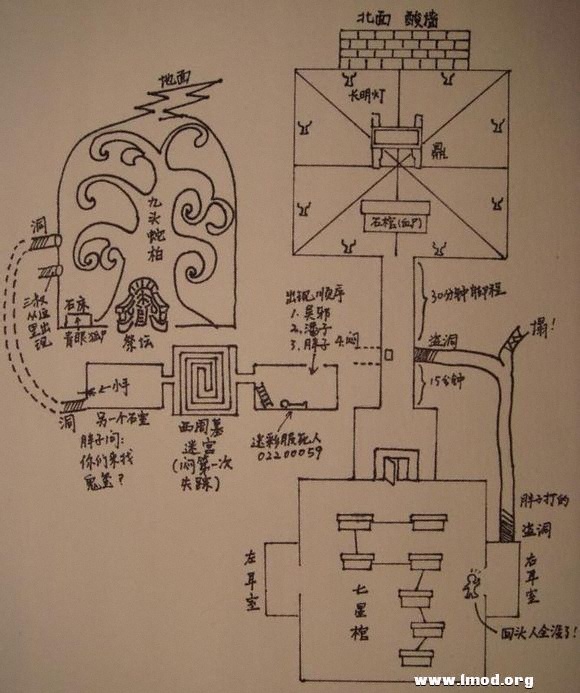 北面 酸墙
地面
长明灯
鼎
九头蛇柏
洞
石棺(血尸)
三叔
从这
里出
现
石床
青眼狐尸
祭坛
出现顺序
1. 吴邪
2. 潘子
3. 胖子 4. 闷
30分钟脚程
塌!
盗洞
15分钟
小手
洞
另一个石室
胖子问:
你们来找
鬼玺?
西周墓
迷宫
(闷第一次
失踪)
迷彩服死人
02200059
胖子打的
盗洞
左耳室
七星棺
右耳室
回头人全没了!
www.lmod.org